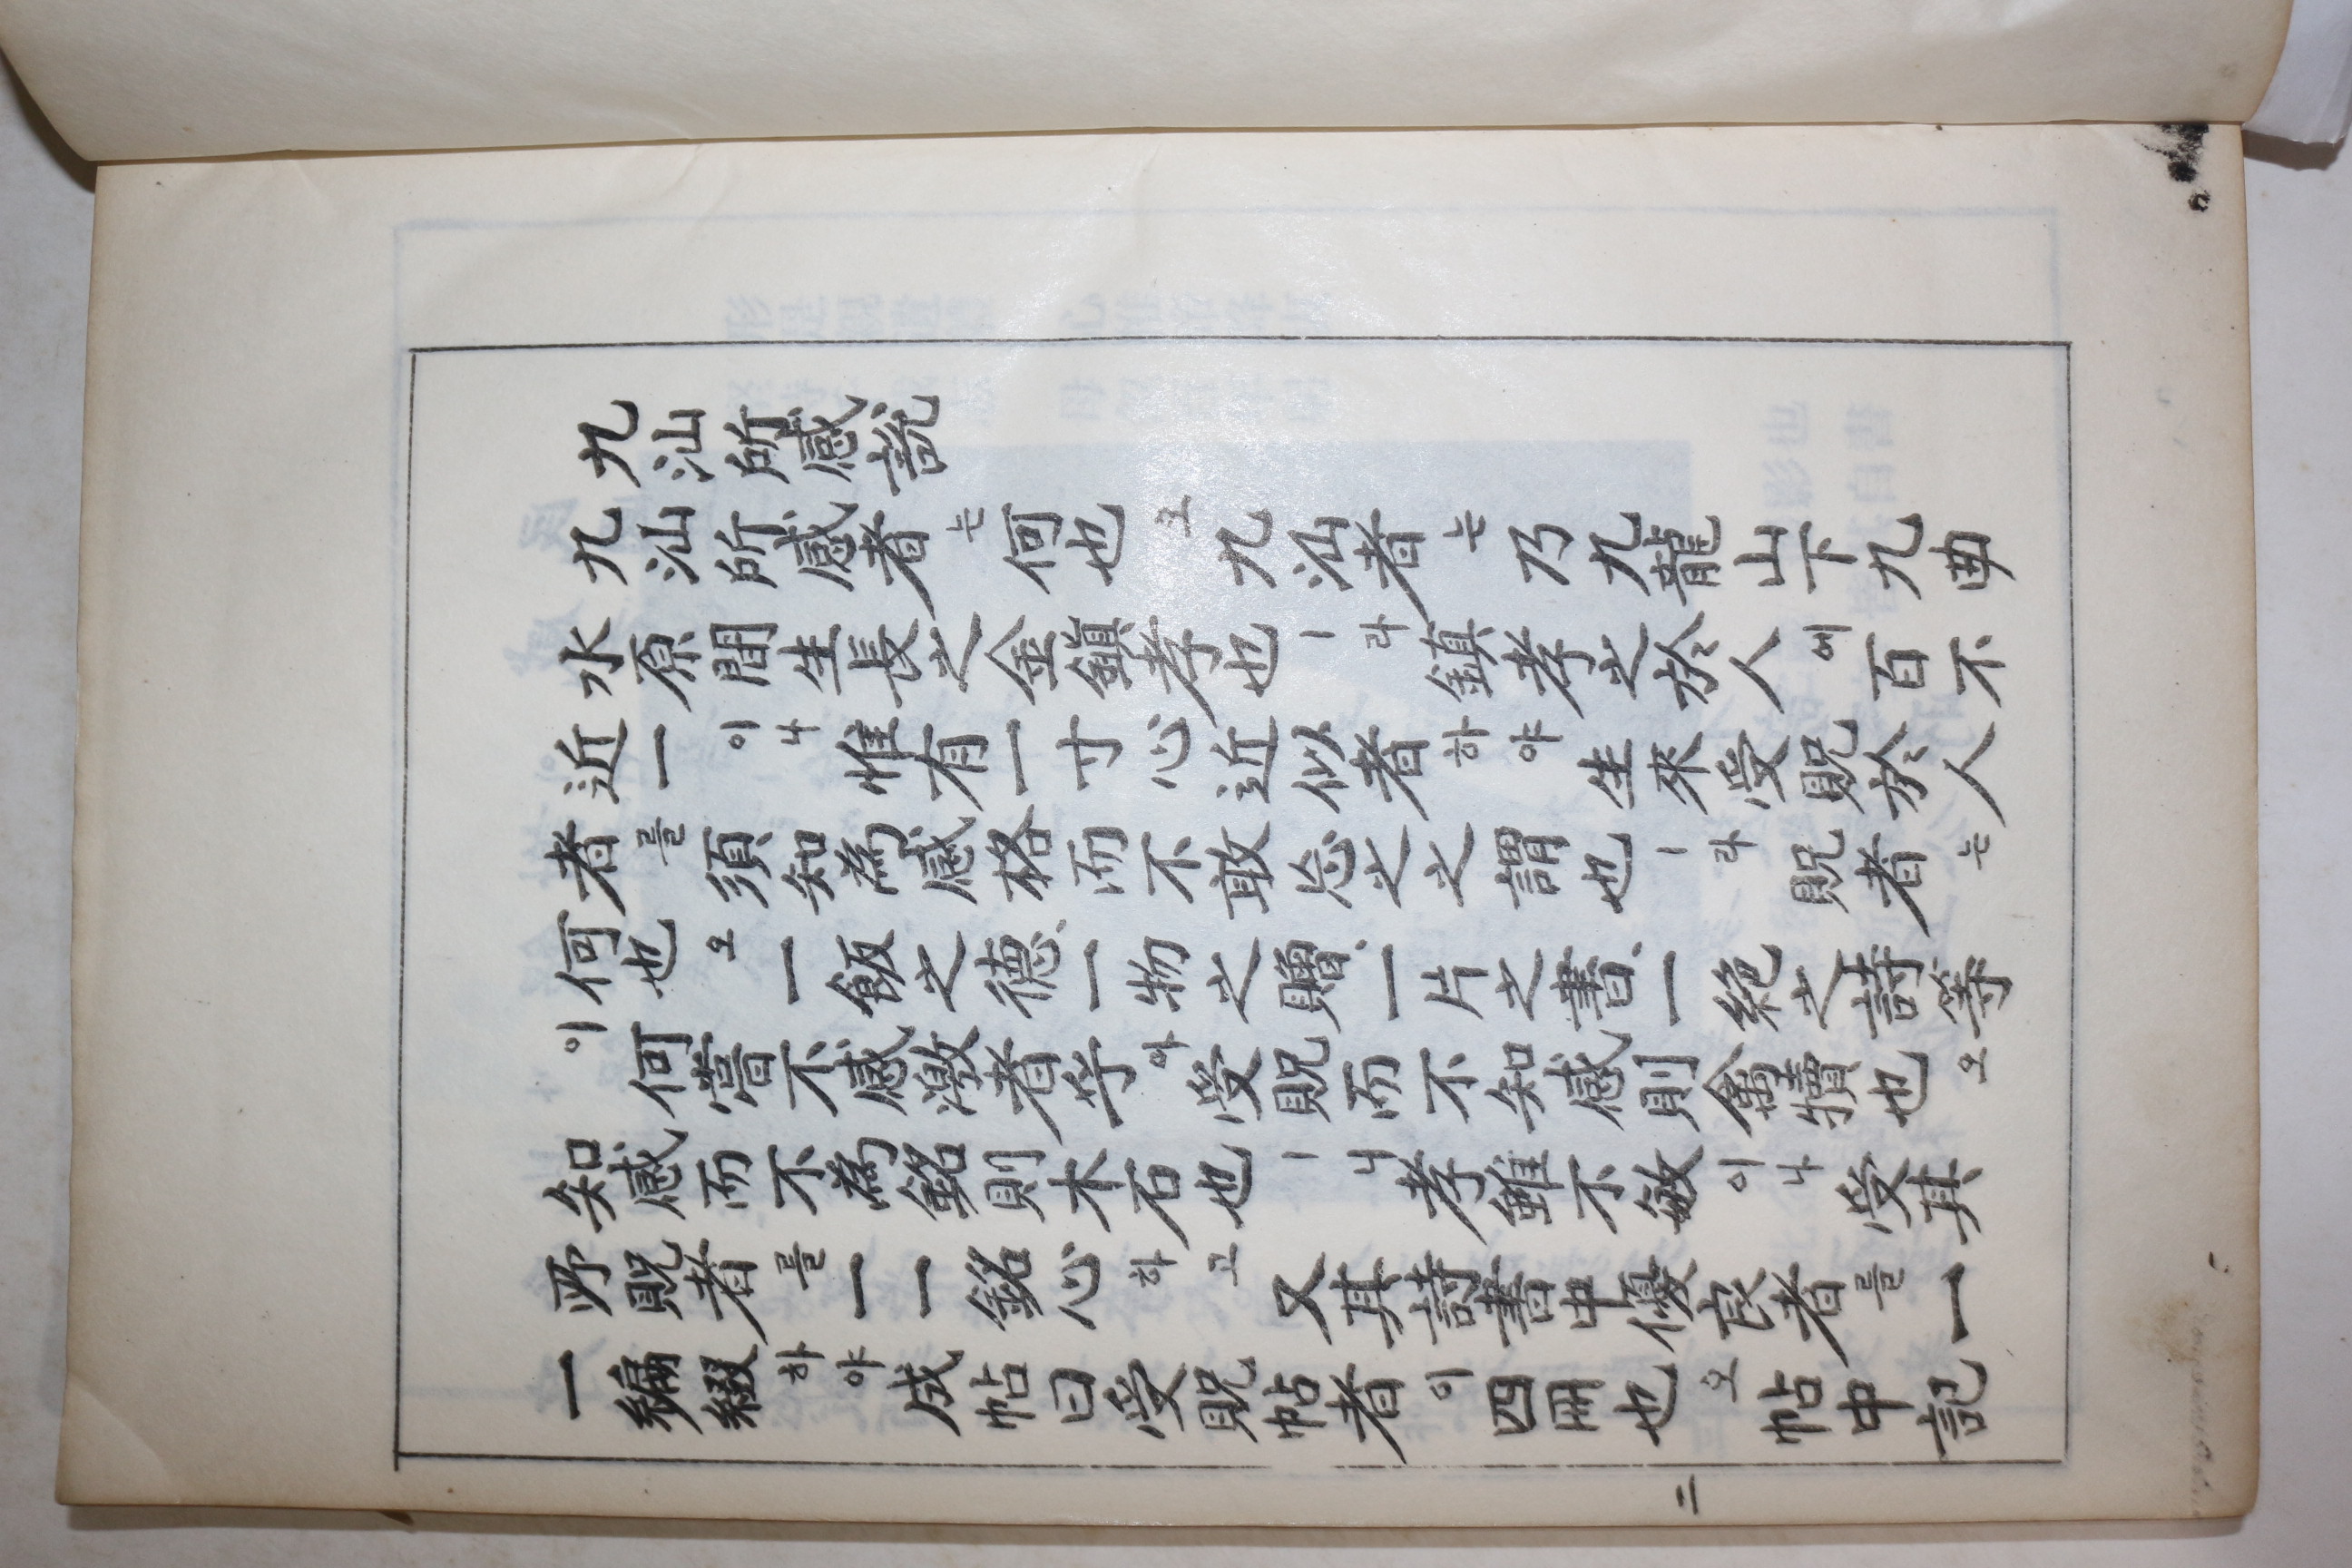 九汕所感說
九汕所感者는何也오九汕者는乃九龍山下九曲
水原間生長之金鎮孝也ㅣ라鎮孝之於人에百不
近一이나惟有一寸心近似者하야生來受貺於人
者를須知為感格而不敢忘之之謂也ㅣ라貺者는
何也오一飯之德、一物之贈、一片之書、一絶之詩等
이何嘗不感激者乎아受貺而不知感則禽犢也오
知感而不為銘則木石也ㅣ니孝雖不敏이나受其
所貺者를一一銘心하고又其詩書中優良者를一
一編綴하야成帖曰受貺帖者이四冊也오帖中記
二